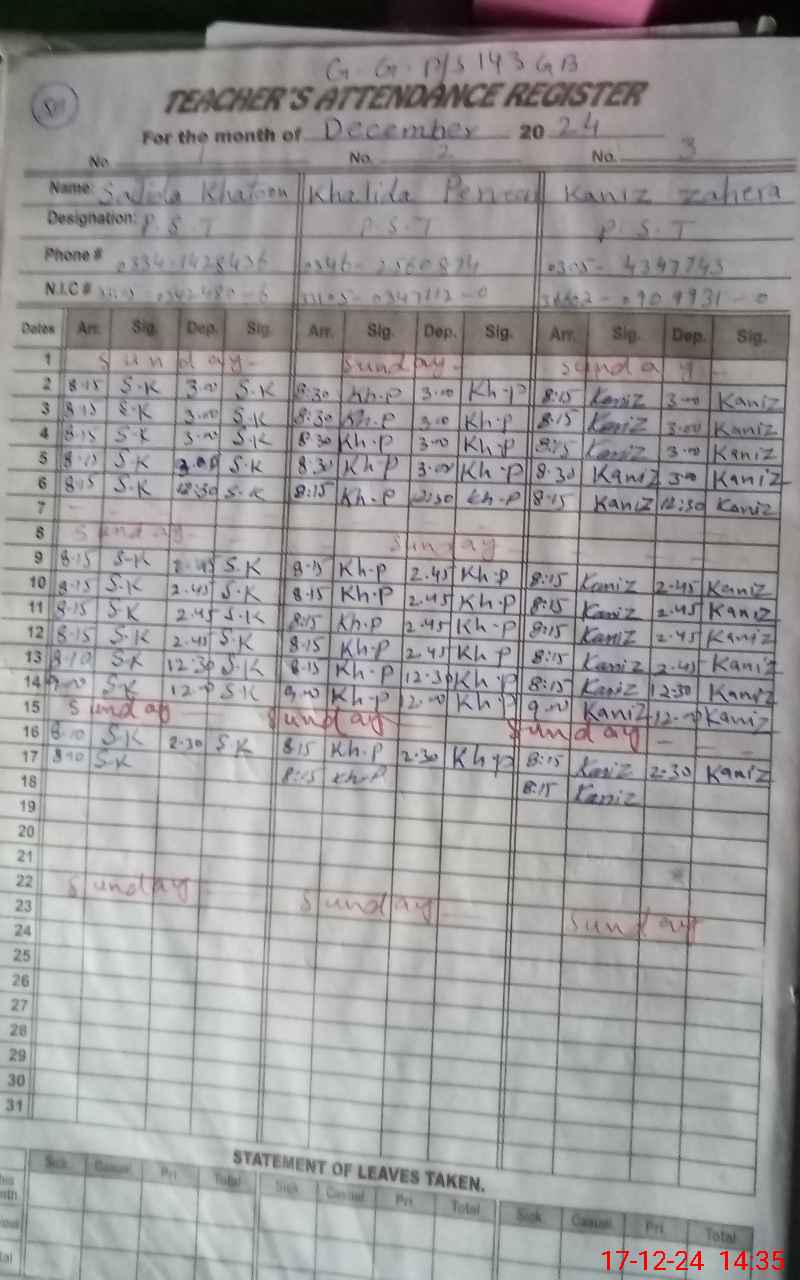 G.G.P/S 143 GB
TEACHER'S ATTENDANCE REGISTER
For the month of December 2024
No. 1 No. 2 No. 3
Name: Khatoon Khalida Kaniz Zahera
Designation: P.S.T P.S.T P.S.T
Phone # 0305-4347743
N.I.C #
Dates Arr. Sig. Dep. Sig. Arr. Sig. Dep. Sig. Arr. Sig. Dep. Sig.
1 Sunday Sunday Sunday
2 8:15 S.K 3:00 S.K 8:30 Kh.P 3:00 Kh.P 8:15 Kaniz 3:00 Kaniz
3 8:15 S.K 3:00 S.K 8:30 Kh.P 3:00 Kh.P 8:15 Kaniz 3:00 Kaniz
4 8:15 S.K 3:00 S.K 8:30 Kh.P 3:00 Kh.P 8:15 Kaniz 3:00 Kaniz
5 8:15 S.K 3:00 S.K 8:30 Kh.P 3:00 Kh.P 8:30 Kaniz 3:00 Kaniz
6 8:15 S.K 12:30 S.K 8:15 Kh.P 12:30 Kh.P 8:15 Kaniz 12:30 Kaniz
7
8 Sunday Sunday
9 8:15 S.K 2.45 S.K 8:15 Kh.P 2.45 Kh.P 8:15 Kaniz 2.45 Kaniz
10 8:15 S.K 2.45 S.K 8:15 Kh.P 2.45 Kh.P 8:15 Kaniz 2.45 Kaniz
11 8:15 S.K 2.45 S.K 8:15 Kh.P 2.45 Kh.P 8:15 Kaniz 2.45 Kaniz
12 8:15 S.K 2.45 S.K 8:15 Kh.P 2.45 Kh.P 8:15 Kaniz 2.45 Kaniz
13 8:10 S.K 12:30 S.K 8:15 Kh.P 12:30 Kh.P 8:15 Kaniz 12:30 Kaniz
14 9:00 S.K 12:00 S.K 9:00 Kh.P 12:00 Kh.P 9:00 Kaniz 12:00 Kaniz
15 Sunday Sunday Sunday
16 8:10 S.K 2:30 S.K 8:15 Kh.P 2:30 Kh.P 8:15 Kaniz 2:30 Kaniz
17 8:10 S.K 8:15 Kh.P 8:15 Kaniz
18
19
20
21
22 Sunday Sunday Sunday
23
24
25
26
27
28
29
30
31
STATEMENT OF LEAVES TAKEN.
Sick Casual Pri. Total Sick Casual Pri. Total Sick Casual Pri. Total
17-12-24 14:35